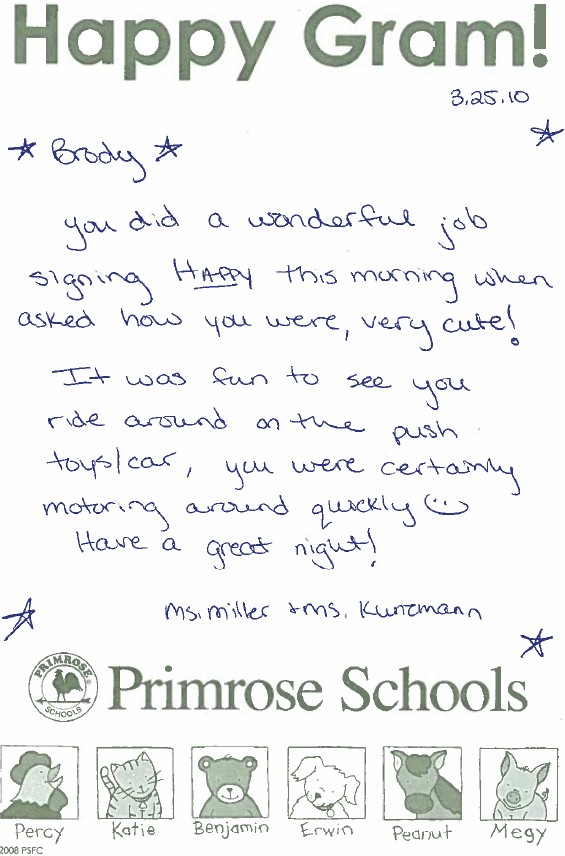 Happy Gram!
3.25.10
Brody
you did a wonderful job
signing HAPPY this morning when
asked how you were, very cute!
It was fun to see you
ride around on the push
toys/car, you were certainly
motoring around quickly
Have a great night!
Ms. Miller + Ms. Kunzmann
PRIMROSE SCHOOLS
Primrose Schools
Percy Katie Benjamin Erwin Peanut Megy
2008 PSFC